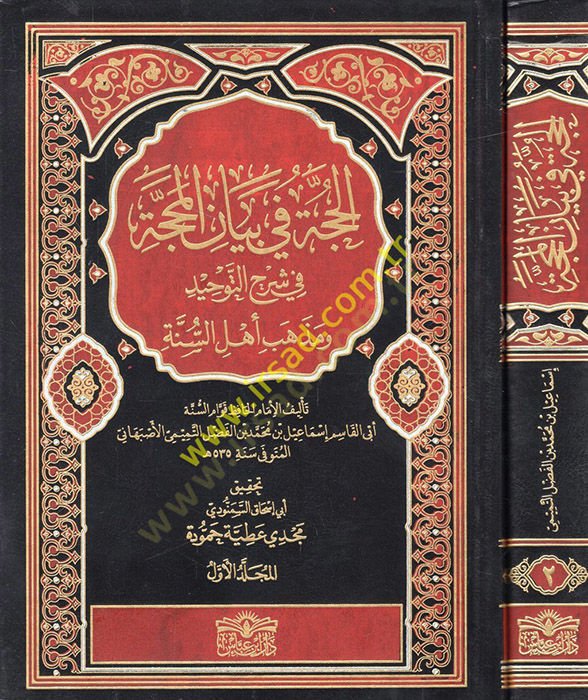 الحجة في بيان المحجة
في شرح التوحيد
ومذهب أهل السنة
تأليف الإمام الحافظ قوام السنة
أبي القاسم إسماعيل بن محمد بن الفضل التيمي الأصبهاني
المتوفى سنة ٥٣٥هـ
تحقيق
أبي إسحاق السمنودي
مجدي عطية حمودة
المجلد الأول
دار ابن عباس
الحجة في بيان المحجة
إسماعيل بن محمد بن الفضل التيمي
٢
دار ابن عباس
www.irsad.com.tr